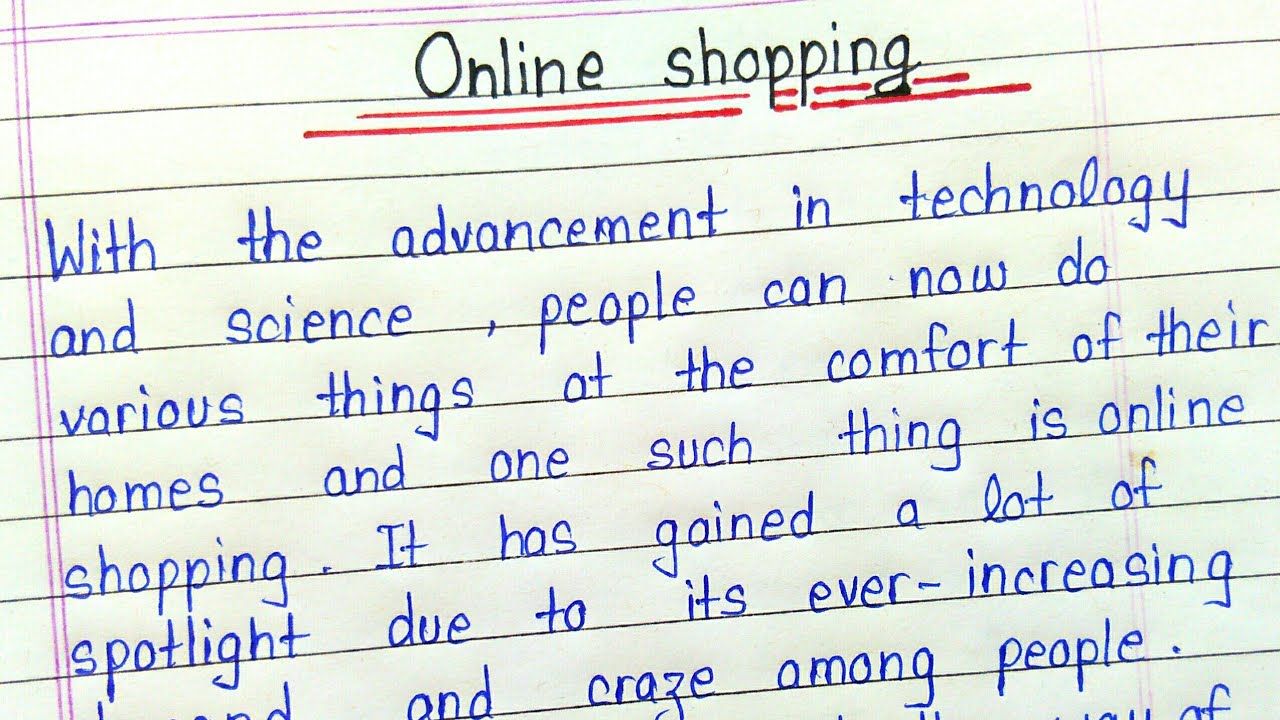 Online shopping
With the advancement in technology
and science, people can now do
various things at the comfort of their
homes and one such thing is online
shopping. It has gained a lot of
spotlight due to its ever-increasing
and craze among people.
of